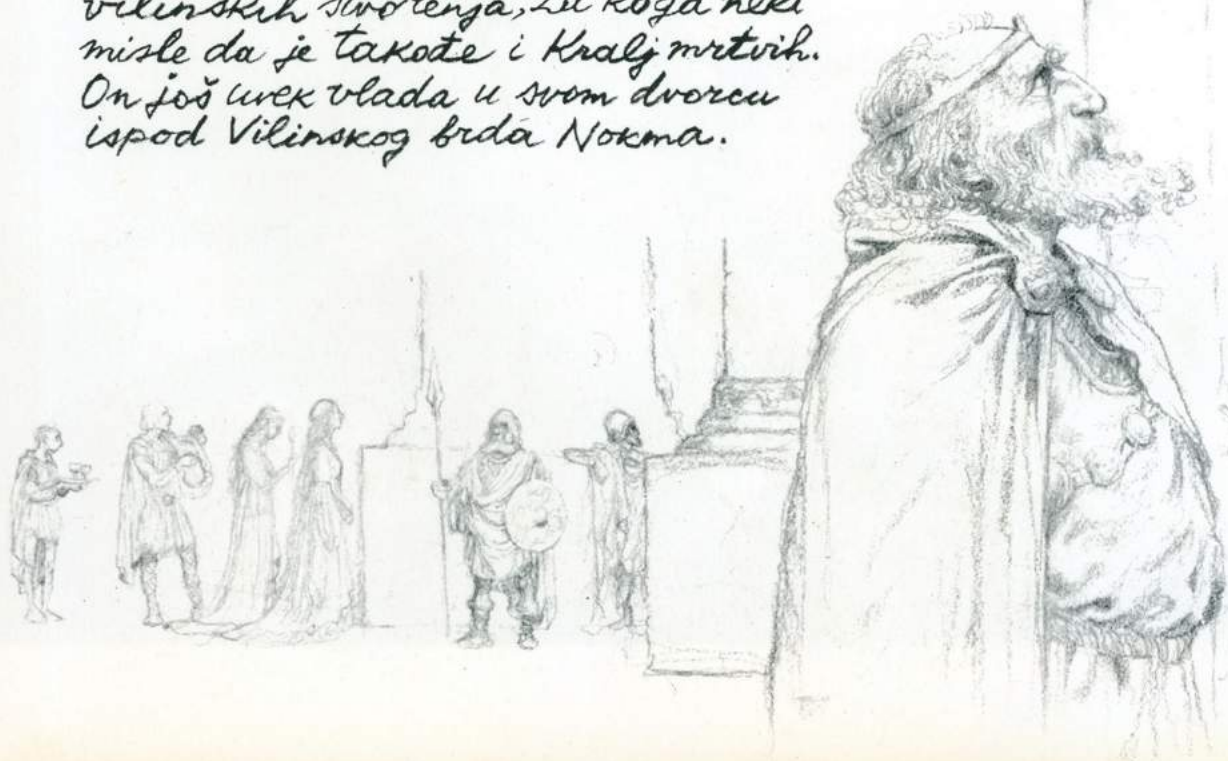 vilinskih stvorenja, za koga neki
misle da je takođe i Kralj mrtvih.
On još uvek vlada u svom dvorcu
ispod Vilinskog brda Nokma.